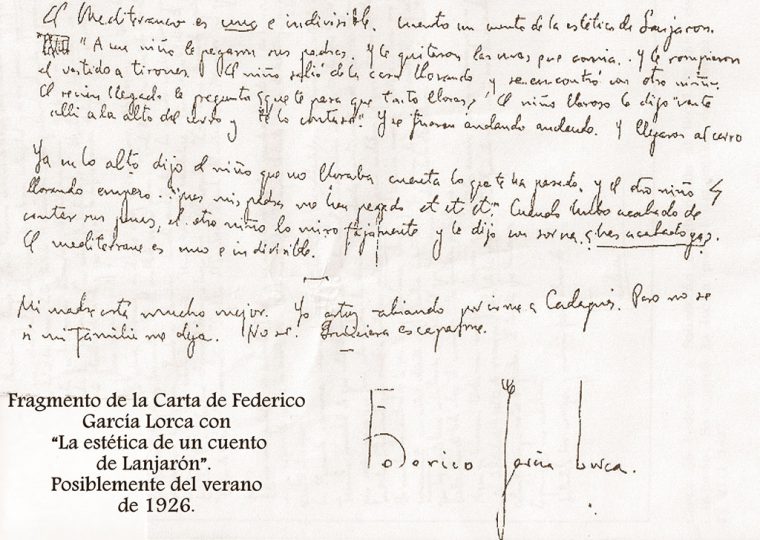 El Mediterraneo es uno e indivisible. Cuento un cuento de la estética de Lanjaron.
"A un niño le pegaron sus padres. Y le quitaron las uvas que comia. Y le rompieron
el vestido a tirones. El niño salió de la casa llorando y se encontró con otro niño.
El recien llegado le pregunto ¿que te pasa que tanto lloras? El niño lloroso le dijo "vente
alli a lo alto del cerro y te lo contaré". Y se fueron andando andando. Y llegaron al cerro
Ya en lo alto dijo el niño que no lloraba cuenta lo que te ha pasado, y el otro niño
llorando empezo.. "pues mis padres me han pegado et et et." Cuando hubo acabado de
contar sus penas, el otro niño lo miro fijamente y le dijo con sorna ¿has acabado ya?.
El mediterraneo es uno e indivisible.
Mi madre está mucho mejor. Yo estoy rabiando por irme a Cadaqués. Pero no se
si mi familia me deja. No se. Quisiera escaparme.
Federico García Lorca.
Fragmento de la Carta de Federico
García Lorca con
“La estética de un cuento
de Lanjarón”.
Posiblemente del verano
de 1926.